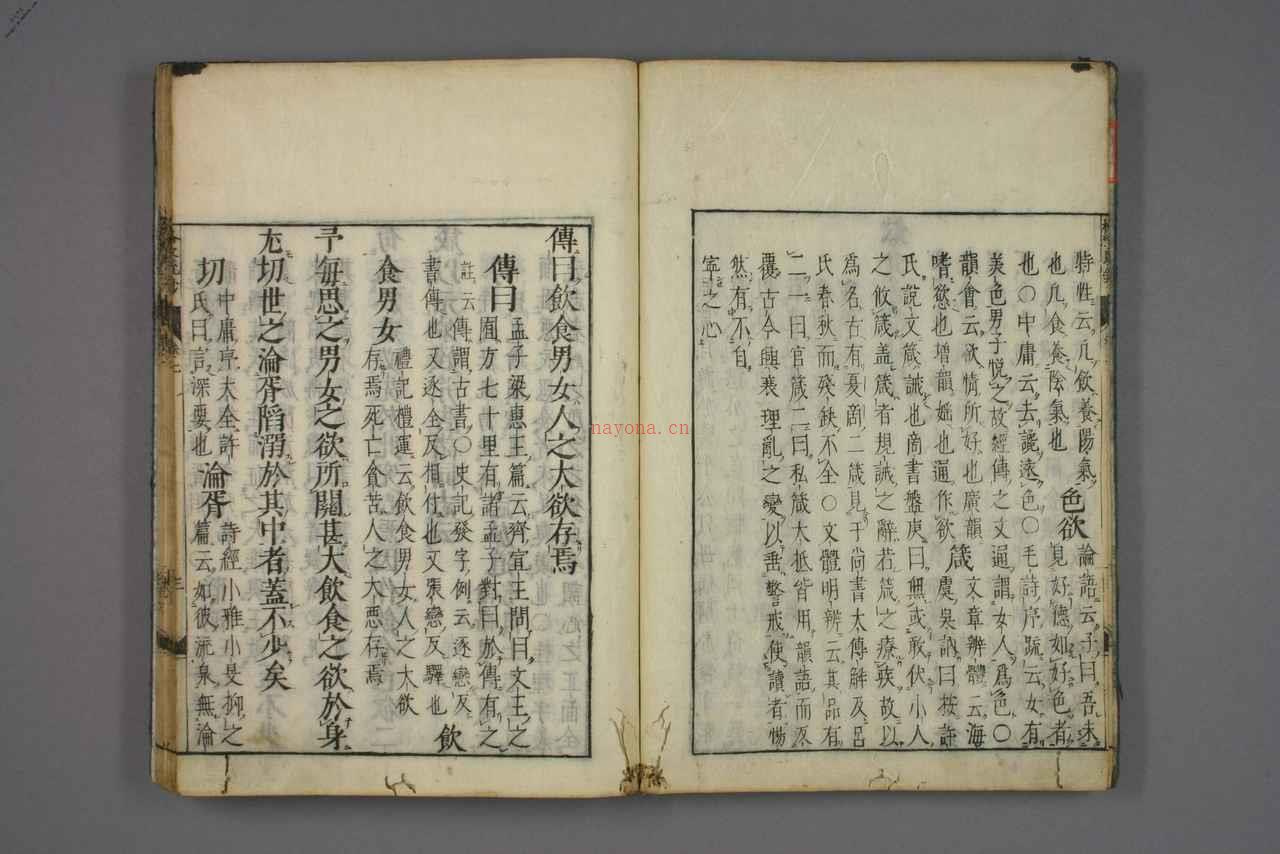 特牲云凡飲養陽氣
也凡食養陰氣也 色欲 論語云子曰吾未
見好德如好色者
也〇中庸云去讒遠色〇毛詩序疏云女有
美色男子悅之故經傳之文通謂女人為色〇
韻會云欲情所好也廣韻
嗜慾也增韻媱也通作欲 箴 文章辨體云海
虞吳訥曰按許
氏說文箴誡也商書盤庚曰無或敢伏小人
之攸箴蓋箴者規誡之辭若箴之療疾故以
為名古有夏商二箴見于尚書大傳解及呂
氏春秋而殘缺不全〇文體明辨云其品有
二一曰官箴二曰私箴大抵皆用韻語而反
覆古今興衰理亂之變以垂警戒使讀者惕
然有不自
寧之心
傳曰飲食男女人之大欲存焉
傳曰 孟子梁惠王篇云齊宣王問曰文王之
囿方七十里有諸孟子對曰於傳有之
註云傳謂古書〇史記發字例云逐戀反
書傳也又逐全反相付也又張戀反驛也 飲
食男女 禮記禮運云飲食男女人之大欲
存焉死亡貧苦人之大惡存焉
予每思之男女之欲所關甚大飲食之欲於身
尤切世之淪胥陷溺於其中者蓋不少矣
切 中庸序大全許
氏曰言深要也 淪胥 詩經小雅小旻抑之
篇云如彼流泉無淪
nayona.cn